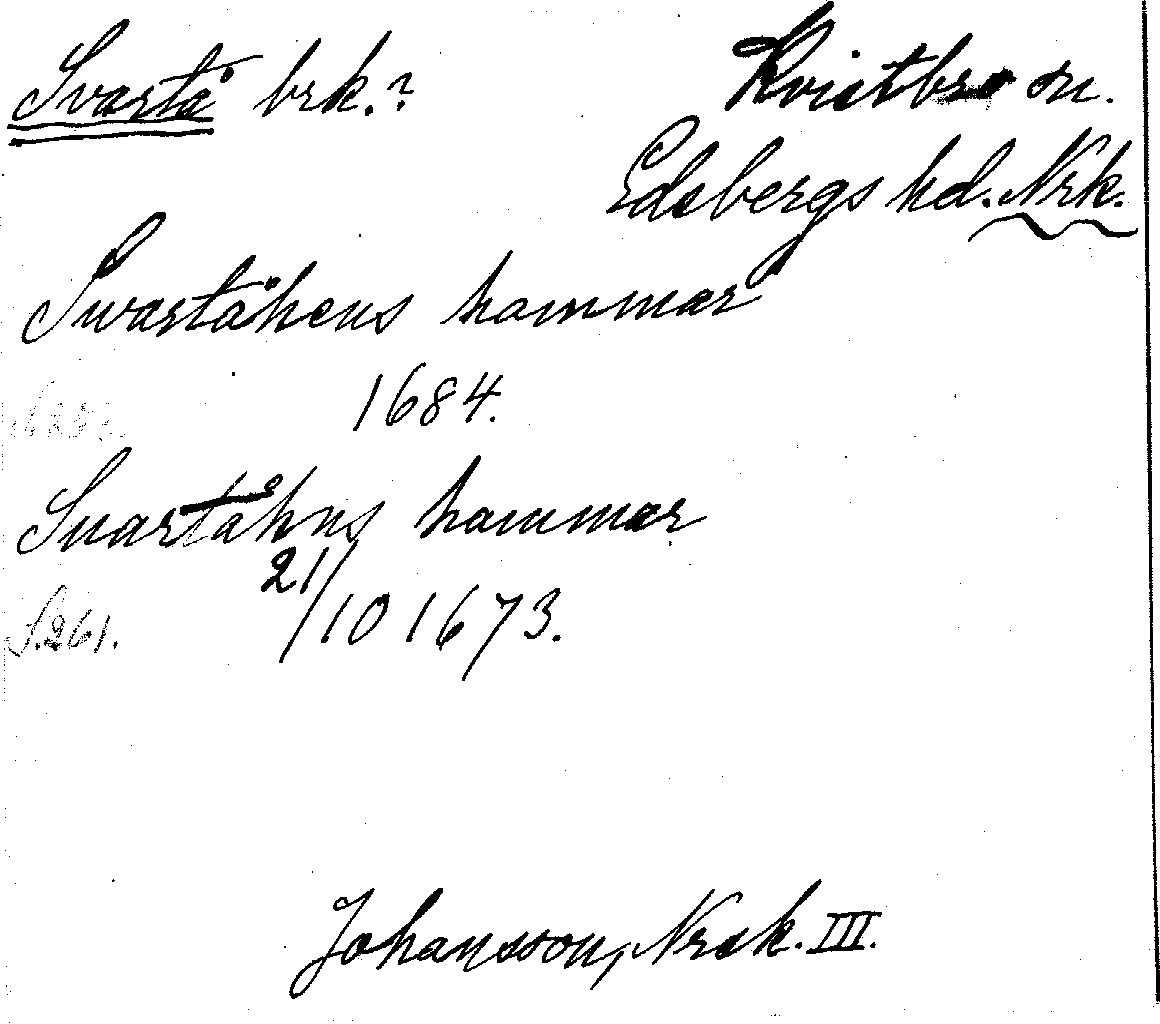 Svartå brk.?
Kvistbro sn.
Edsbergs hd. Nrk.
Swartåhens hammar
1684.
Suartåhns hammar
21/10 1673.
S.261.
Johansson, Nrsk. III.